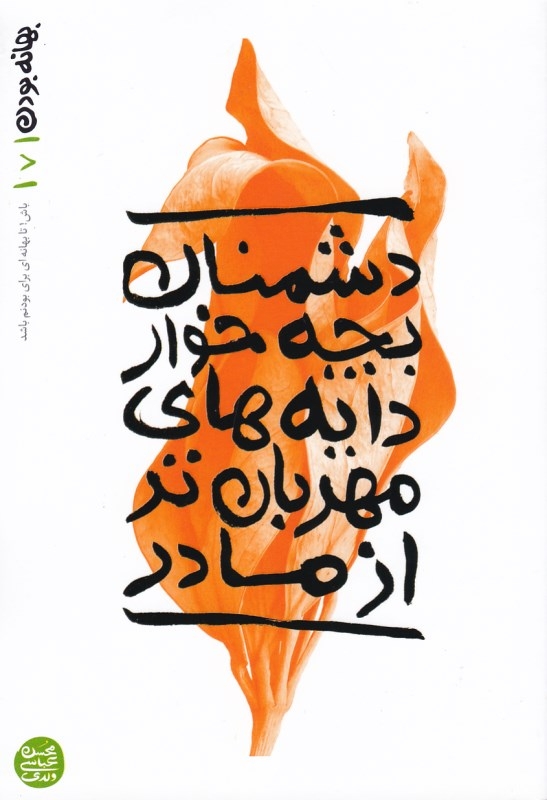 دشمنان
بچه خوار
دایه های
مهربان تر
از مادر
بهانه بودن
۷
باش! تا بهانه ای برای بودنم باشد
محسن
عباسی
ولدی